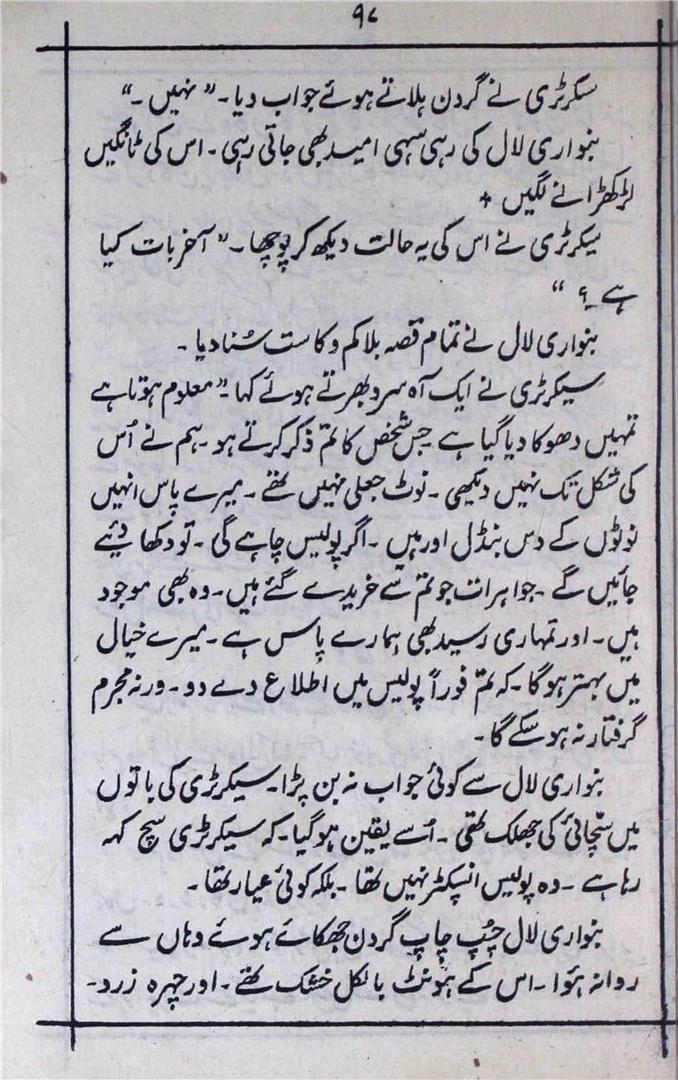 ۹۸
سکرٹری نے گردن ہلاتے ہوئے جواب دیا۔ "نہیں۔"
بنواری لال کی رہی سہی امید بھی جاتی رہی۔ اس کی ٹانگیں
لڑکھڑانے لگیں +
سیکرٹری نے اس کی یہ حالت دیکھ کر پوچھا۔ "آخر بات کیا
ہے؟"
بنواری لال نے تمام قصہ بلاکم و کاست سُنا دیا۔
سیکرٹری نے ایک آہ سرد بھرتے ہوئے کہا۔ "معلوم ہوتا ہے
تمہیں دھوکا دیا گیا ہے جس شخص کا تم ذکر کرتے ہو۔ ہم نے اُس
کی شکل تک نہیں دیکھی۔ نوٹ جعلی نہیں تھے۔ میرے پاس انہیں
نوٹوں کے دس بنڈل اور ہیں۔ اگر پولیس چاہے گی۔ تو دکھا دئیے
جائیں گے۔ جواہرات جو تم سے خریدے گئے ہیں۔ وہ بھی موجود
ہیں۔ اور تمہاری رسید بھی ہمارے پاس ہے۔ میرے خیال
میں بہتر ہوگا۔ کہ تم فوراً پولیس میں اطلاع دے دو۔ ورنہ مجرم
گرفتار نہ ہو سکے گا۔
بنواری لال سے کوئی جواب نہ بن پڑا۔ سیکرٹری کی باتوں
میں سچائی کی جھلک تھی۔ اُسے یقین ہوگیا۔ کہ سیکرٹری سچ کہہ
رہا ہے۔ وہ پولیس انسپکٹر نہیں تھا۔ بلکہ کوئی عیار تھا۔
بنواری لال چُپ چاپ گردن جھکائے ہوئے وہاں سے
روانہ ہُوا۔ اس کے ہونٹ بالکل خشک تھے۔ اور چہرہ زرد۔